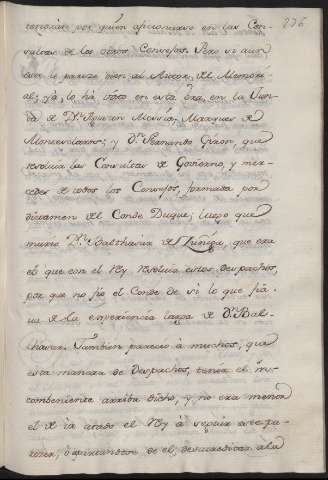 236
tendrian por quien aficionarse en las Con-
sultas de los otros Consejos. Pero si aun
esto le parece bien al Autor del Memori-
al; ya, lo há visto en esta Era, en la Jun-
ta de Dn. Agustin Mexia, Marques de
Montesclaros; y Dn. Fernando Giron, que
resolvia las Consultas de Govierno, y mer-
cedes de todos los Consejos, formada por
dictamen del Conde Duque; luego que
murió Dn. Balthasar de Zuñiga, que era
el que con el Rey resolvia estos despachos,
por que no fió el Conde de si lo que fia-
va de la experiencia larga de Dn. Bal-
thasar. Tambien pareció á muchos, que
esta manera de Despachos, tenia el in-
combeniente arriba dicho, y no era menor
el de ir atado el Rey á seguir aste pa-
recer, ó apartandose de el, desacreditar ala